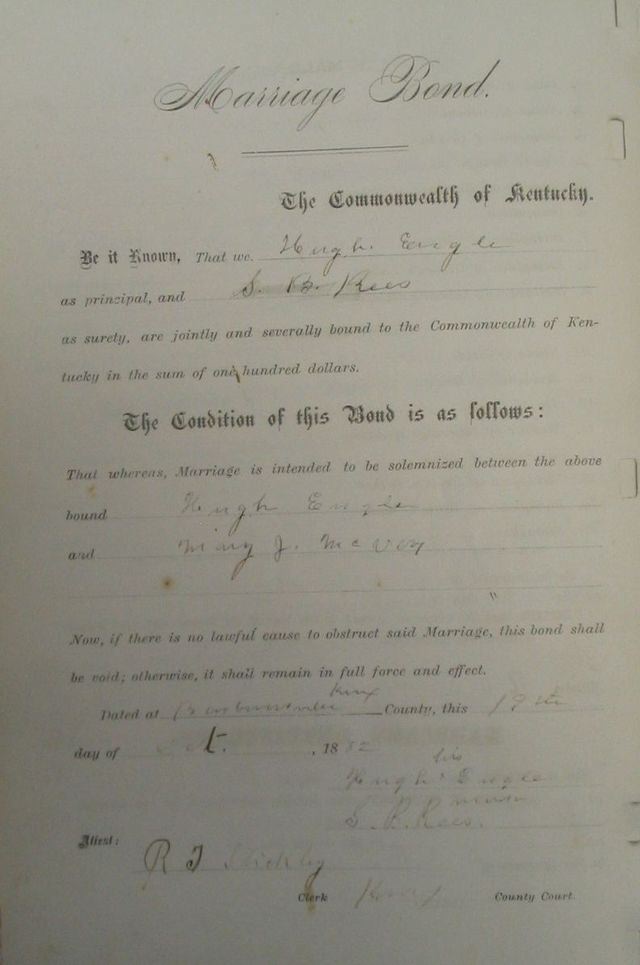 Marriage Bond.
The Commonwealth of Kentucky.
Be it Known, That we. Hugh Engle
as principal, and S. B. Rees
as surety, are jointly and severally bound to the Commonwealth of Ken-
tucky in the sum of one hundred dollars.
The Condition of this Bond is as follows:
That whereas, Marriage is intended to be solemnized between the above
bound Hugh Engle
and Mary J. McVey
Now, if there is no lawful cause to obstruct said Marriage, this bond shall
be void; otherwise, it shall remain in full force and effect.
Knox
Dated at Barbourville County, this 19th
day of , 1882
his
Hugh Engle
mark
Rees.
Attest:
R
Clerk Knox County Court.